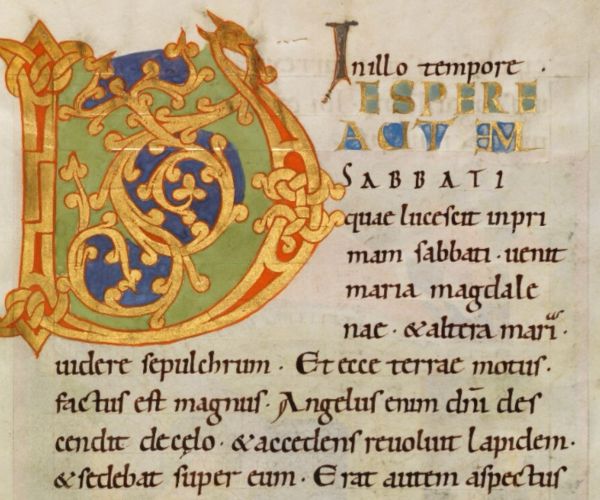 In illo tempore .
UESPERE
AUTEM
SABBATI
quae lucescit in pri
mam sabbati · uenit
maria magdale
nae · & altera mariᵃ ·
uidere sepulchrum · Et ecce terrae motus ·
factus est magnus · Angelus enim dn̄i des
cendit de cęlo · & accedens reuoluit lapidem ·
& sedebat super eum · Erat autem aspectus